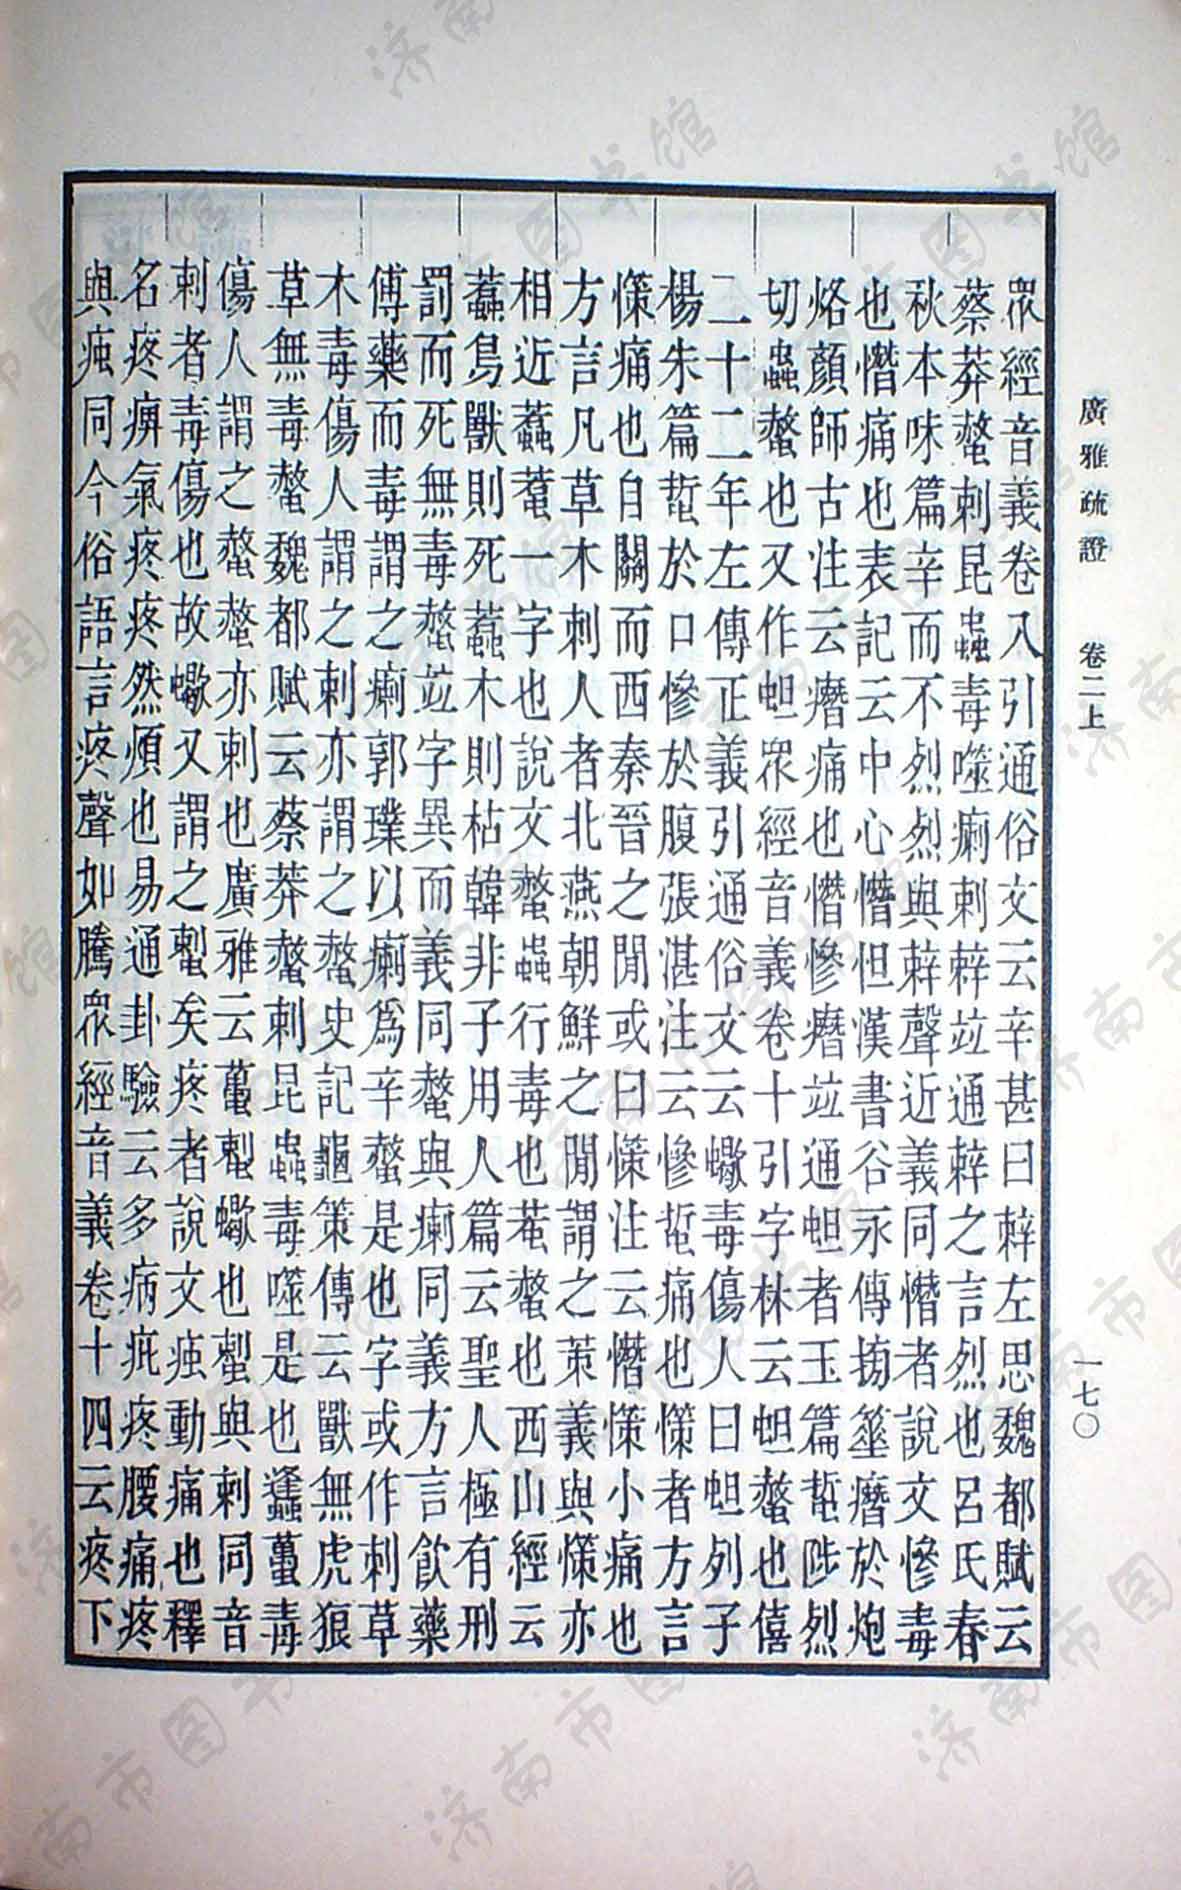 廣雅疏證　卷二上　一七〇
眾經音義卷八引通俗文云辛甚曰辢左思魏都賦云
蔡莽螫刺昆蟲毒噬瘌刺辢竝通辢之言烈也呂氏春
秋本味篇辛而不烈烈與辢聲近義同憯者說文慘毒
也憯痛也表記云中心憯怛漢書谷永傳搒箠㿊於炮
烙顏師古注云㿊痛也憯慘㿊竝通蛆者玉篇蜇陟烈
切蟲螫也又作蛆眾經音義卷十引字林云蛆螫也僖
二十二年左傳正義引通俗文云蠍毒傷人曰蛆列子
楊朱篇蜇於口慘於腹張湛注云慘蜇痛也憡者方言
憡痛也自關而西秦晉之閒或曰憡注云憯憡小痛也
方言凡草木刺人者北燕朝鮮之閒謂之茦義與憡亦
相近蠚䓯一字也說文螫蟲行毒也䓯螫也西山經云
蠚鳥獸則死蠚木則枯韓非子用人篇云聖人極有刑
罰而死無毒螫竝字異而義同螫與瘌同義方言飲藥
傅藥而毒謂之瘌郭璞以瘌爲辛螫是也字或作刺草
木毒傷人謂之刺亦謂之螫史記龜策傳云獸無虎狼
草無毒螫魏都賦云蔡莽螫刺昆蟲毒噬是也蠭蠆毒
傷人謂之螫螫亦刺也廣雅云蠆䗶蠍也䗶與刺同音
刺者毒傷也故蠍又謂之䗶矣疼者說文痋動痛也釋
名疼痹氣疼疼然煩也易通卦驗云多病疕疼腰痛疼
與痋同今俗語言疼聲如騰眾經音義卷十四云疼下